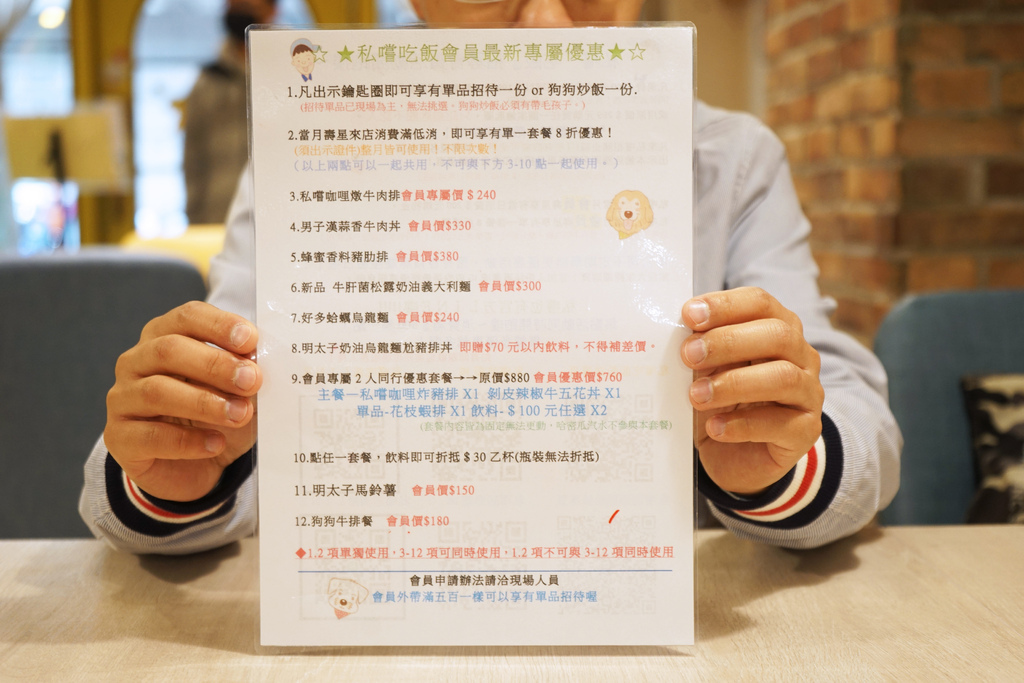 ☆ ★私嚐吃飯會員最新專屬優惠★☆
1.凡出示鑰匙圈即可享有單品招待一份 or 狗狗炒飯一份.
(招待單品已現場為主，無法挑選。狗狗炒飯必須有帶毛孩子。)
2.當月壽星來店消費滿低消，即可享有單一套餐 8 折優惠！
(須出示證件)整月皆可使用！不限次數！
(以上兩點可以一起共用，不可與下方 3-10 點一起使用。)
3.私嚐咖哩燉牛肉排會員專屬價＄240
4.男子漢蒜香牛肉丼 會員價$330
5.蜂蜜香料豬肋排 會員價$380
6.新品 牛肝菌松露奶油義大利麵 會員價$300
7.好多蛤蠣烏龍麵 會員價$240
8.明太子奶油烏龍麵尬豬排丼 即贈$70 元以內飲料，不得補差價。
9.會員專屬 2 人同行優惠套餐→→原價$880 會員優惠價$760
主餐—私嚐咖哩炸豬排 X1 剝皮辣椒牛五花丼 X1
單品-花枝蝦排 X1 飲料-＄100 元任選 X2
10.點任一套餐，飲料即可折抵＄30 乙杯(瓶裝無法折抵)
11.明太子馬鈴薯 會員價$150
12.狗狗牛排餐 會員價$180
◆1.2 項單獨使用，3-12 項可同時使用，1.2 項不可與 3-12 項同時使用
會員申請辦法請洽現場人員
會員外帶滿五百一樣可以享有單品招待喔